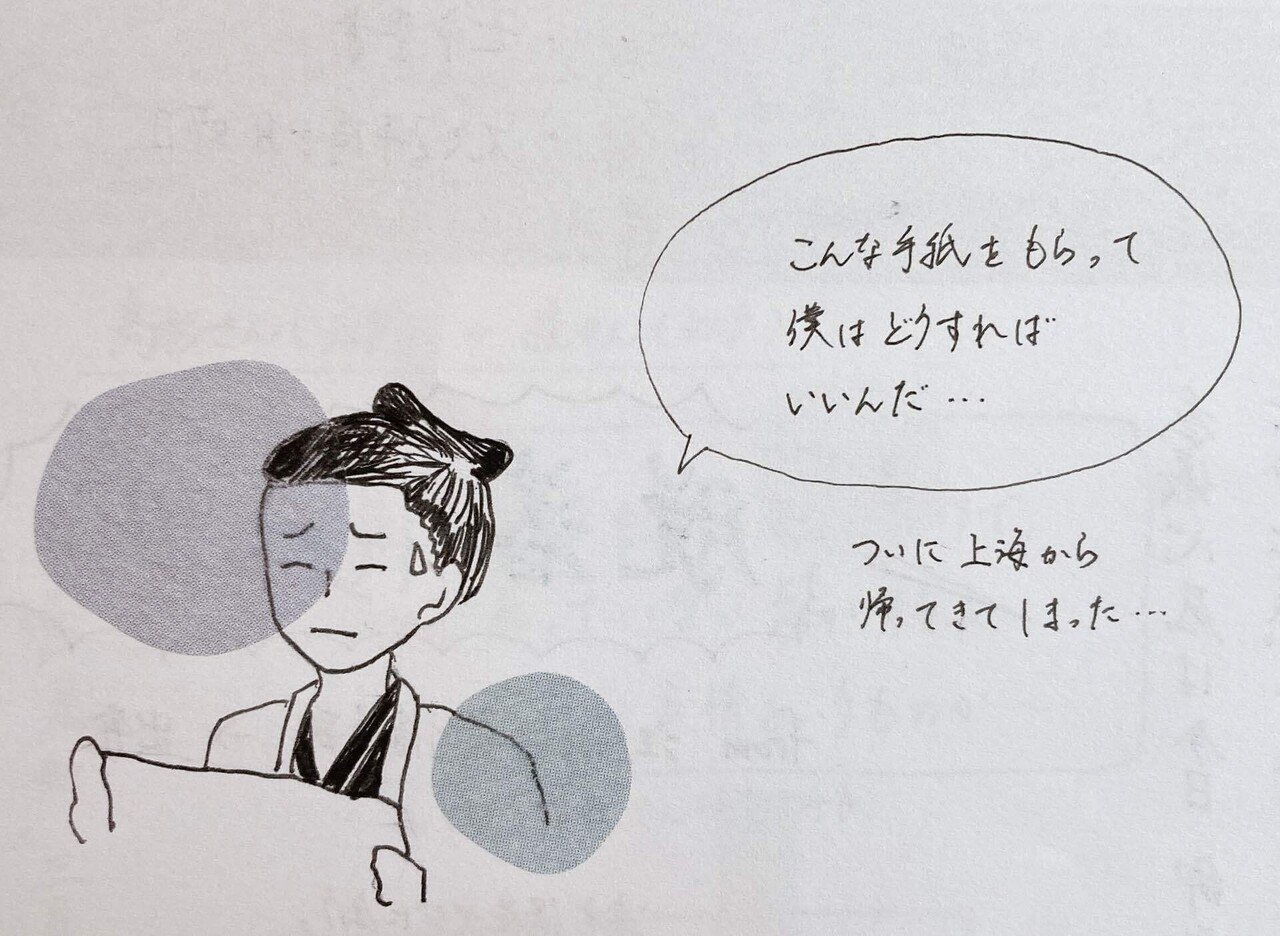 こんな手紙をもらって
僕はどうすれば
いいんだ…
ついに上海から
帰ってきてしまった…